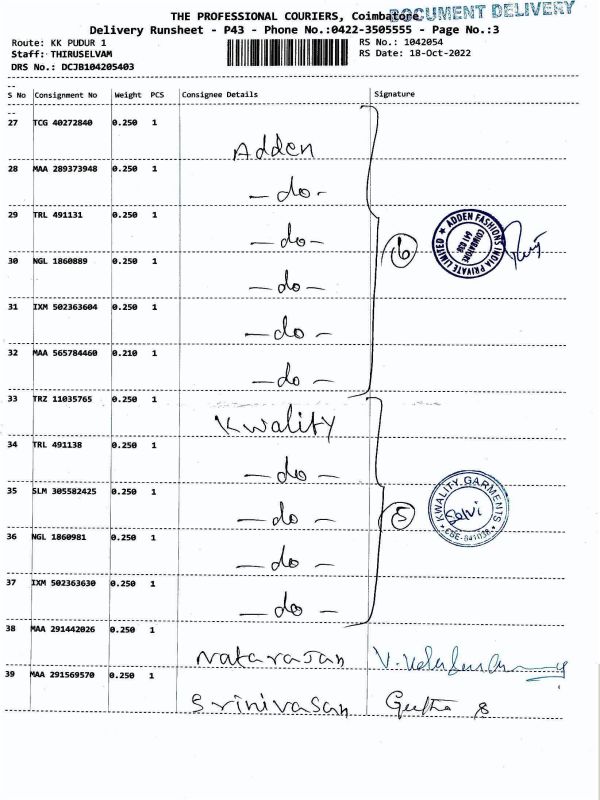 THE PROFESSIONAL COURIERS, Coimbatore
DOCUMENT DELIVERY
Delivery Runsheet - P43 - Phone No.:0422-3505555 - Page No.:3
Route: KK PUDUR 1 RS No.: 1042054
Staff: THIRUSELVAM RS Date: 18-Oct-2022
DRS No.: DCJB104205403
S No Consignment No Weight PCS Consignee Details Signature
27 TCG 40272840 0.250 1
Adden
28 MAA 289373948 0.250 1
- do -
29 TRL 491131 0.250 1
- do -
ADDEN FASHIONS INDIA PRIVATE LIMITED ★
COIMBATORE
641 038
6
30 NGL 1860889 0.250 1
- do -
31 IXM 502363604 0.250 1
- do -
32 MAA 565784460 0.210 1
- do -
33 TRZ 11035765 0.250 1
Kwality
34 TRL 491138 0.250 1
- do -
35 SLM 305582425 0.250 1
- do -
5
KWALITY GARMENTS
Selvi
CBE-641038
36 NGL 1860981 0.250 1
- do -
37 IXM 502363630 0.250 1
- do -
38 MAA 291442026 0.250 1
Natarajan
39 MAA 291569570 0.250 1
Srinivasan Geetha S